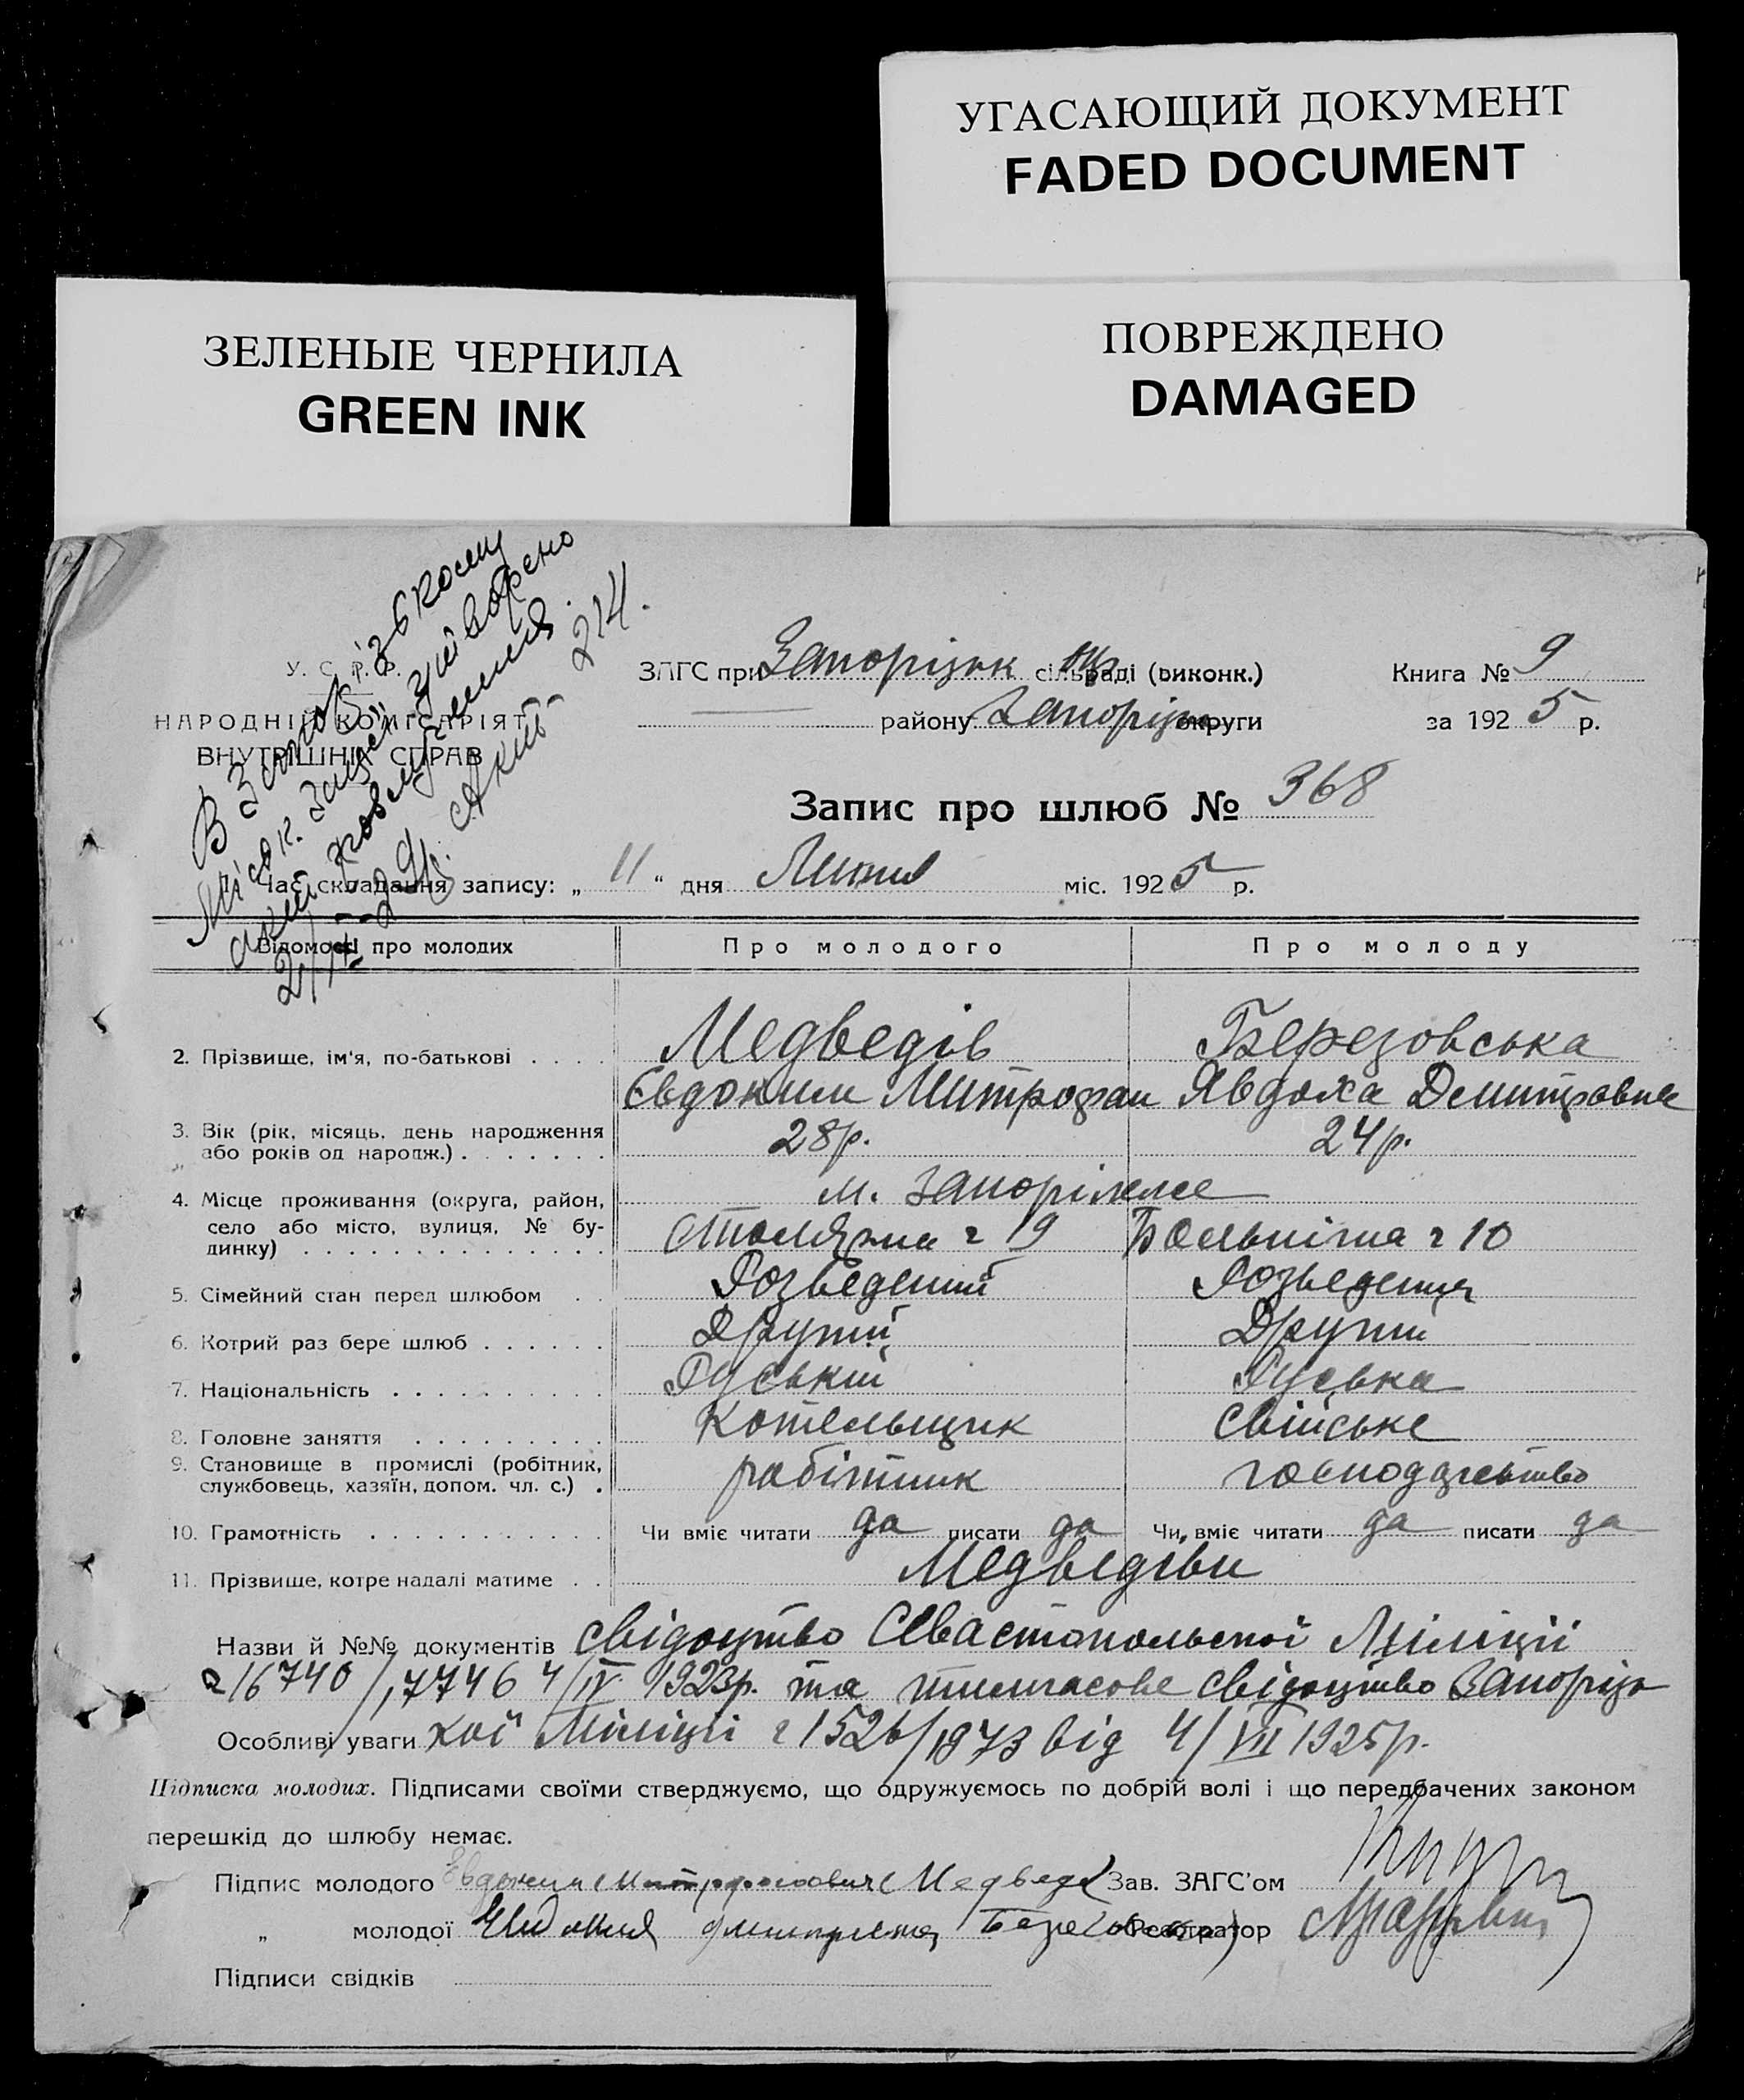 УГАСАЮЩИЙ ДОКУМЕНТ
FADED DOCUMENT
ЗЕЛЕНЫЕ ЧЕРНИЛА
GREEN INK
ПОВРЕЖДЕНО
DAMAGED
В Запорізьком
Міськ. Загсі утворено
акт розлучення
21/IX-29р. Акт - 214.
У. С. Р. Р.
НАРОДНІЙ КОМІСАРІЯТ
ВНУТРІШНІХ СПРАВ
ЗАГС при Запорізьк сільраді (виконк.)
району Запорізьк округи
Книга № 9
за 1925 р.
Запис про шлюб № 368
Час складання запису: „ 11 “ дня Липня міс. 1925 р.
Відомості про молодих Про молодого Про молоду
2. Прізвище, ім'я, по-батькові . . . . Медведів Березовська
Євдоким Митрофан Явдоха Демитровна
3. Вік (рік, місяць, день народження або років од народж.) . . . . . . . 28р. 24р.
4. Місце проживання (округа, район, м. Запоріжже
село або місто, вулиця, № будинку) . . . . . . . . . . . . . . Столярна ч 19 Больнічна ч 10
5. Сімейний стан перед шлюбом . . Розведений Розведеня
6. Котрий раз бере шлюб . . . . . . Другий Другий
7. Національність . . . . . . . . . . Руській Руська
8. Головне заняття . . . . . . . . . Котельщик Свійське
9. Становище в промислі (робітник, службовець, хазяїн, допом. чл. с.) . робітник господарство
10. Грамотність . . . . . . . . . . . Чи вміє читати да писати да Чи вміє читати да писати да
11. Прізвище, котре надалі матиме . . Медведіви
Назви й №№ документів свідоцтво Севастопольської Міліції
ч 16740/17746 4/IV 1923р. та тимчасове свідоцтво Запорізь
Особливі уваги кої Міліції ч 1526/1973 від 4/VII 1925р.
Підписка молодих. Підписами своїми стверджуємо, що одружуємось по добрій волі і що передбачених законом
перешкід до шлюбу немає.
Підпис молодого Евдоким Митрофанович Медведв Зав. ЗАГС'ом
„ молодої Реєстратор
Підписи свідків